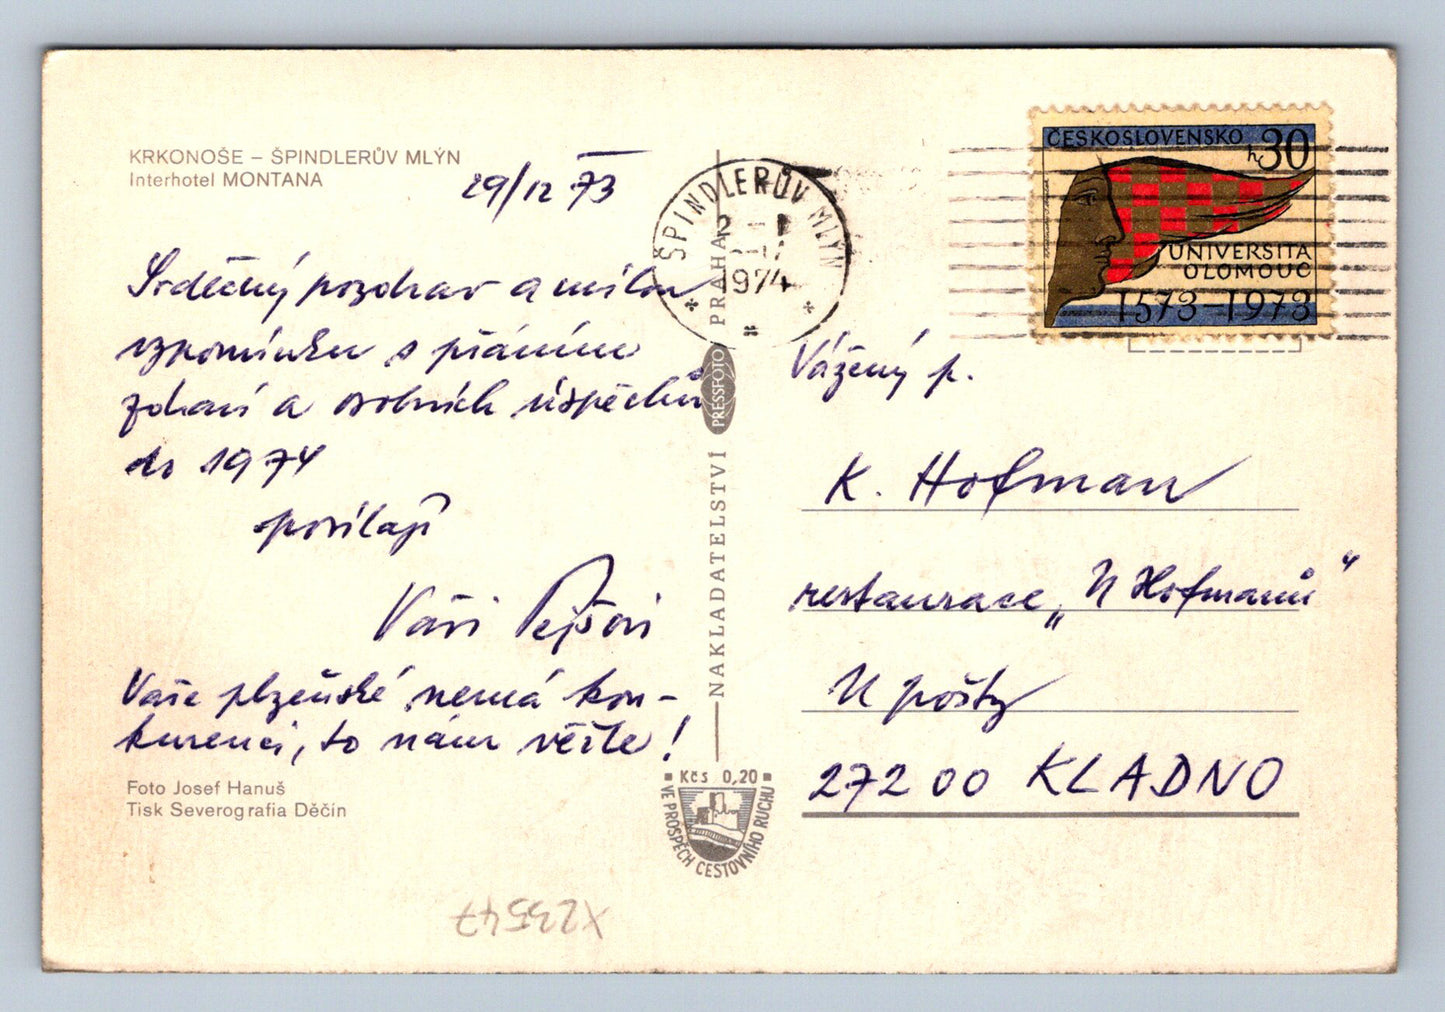 KRKONOŠE – ŠPINDLERŮV MLÝN
Interhotel MONTANA
29/12 73
Srdečný pozdrav a milou
vzpomínku s přáním
zdraví a osobních úspěchů
do 1974
posílají
Vaši Pejšovi
Vaše plzeňské nemá kon-
kurenci, to nám věřte!
Foto Josef Hanuš
Tisk Severografia Děčín
X23547
NAKLADATELSTVÍ PRESSFOTO PRAHA
Kčs 0,20
VE PROSPĚCH CESTOVNÍHO RUCHU
ŠPINDLERŮV MLÝN
1974
ČESKOSLOVENSKO
30 h
UNIVERSITA
OLOMOUC
1573–1973
Vážený p.
K. Hofman
restaurace „U Hofmanů“
U pošty
272 00 KLADNO